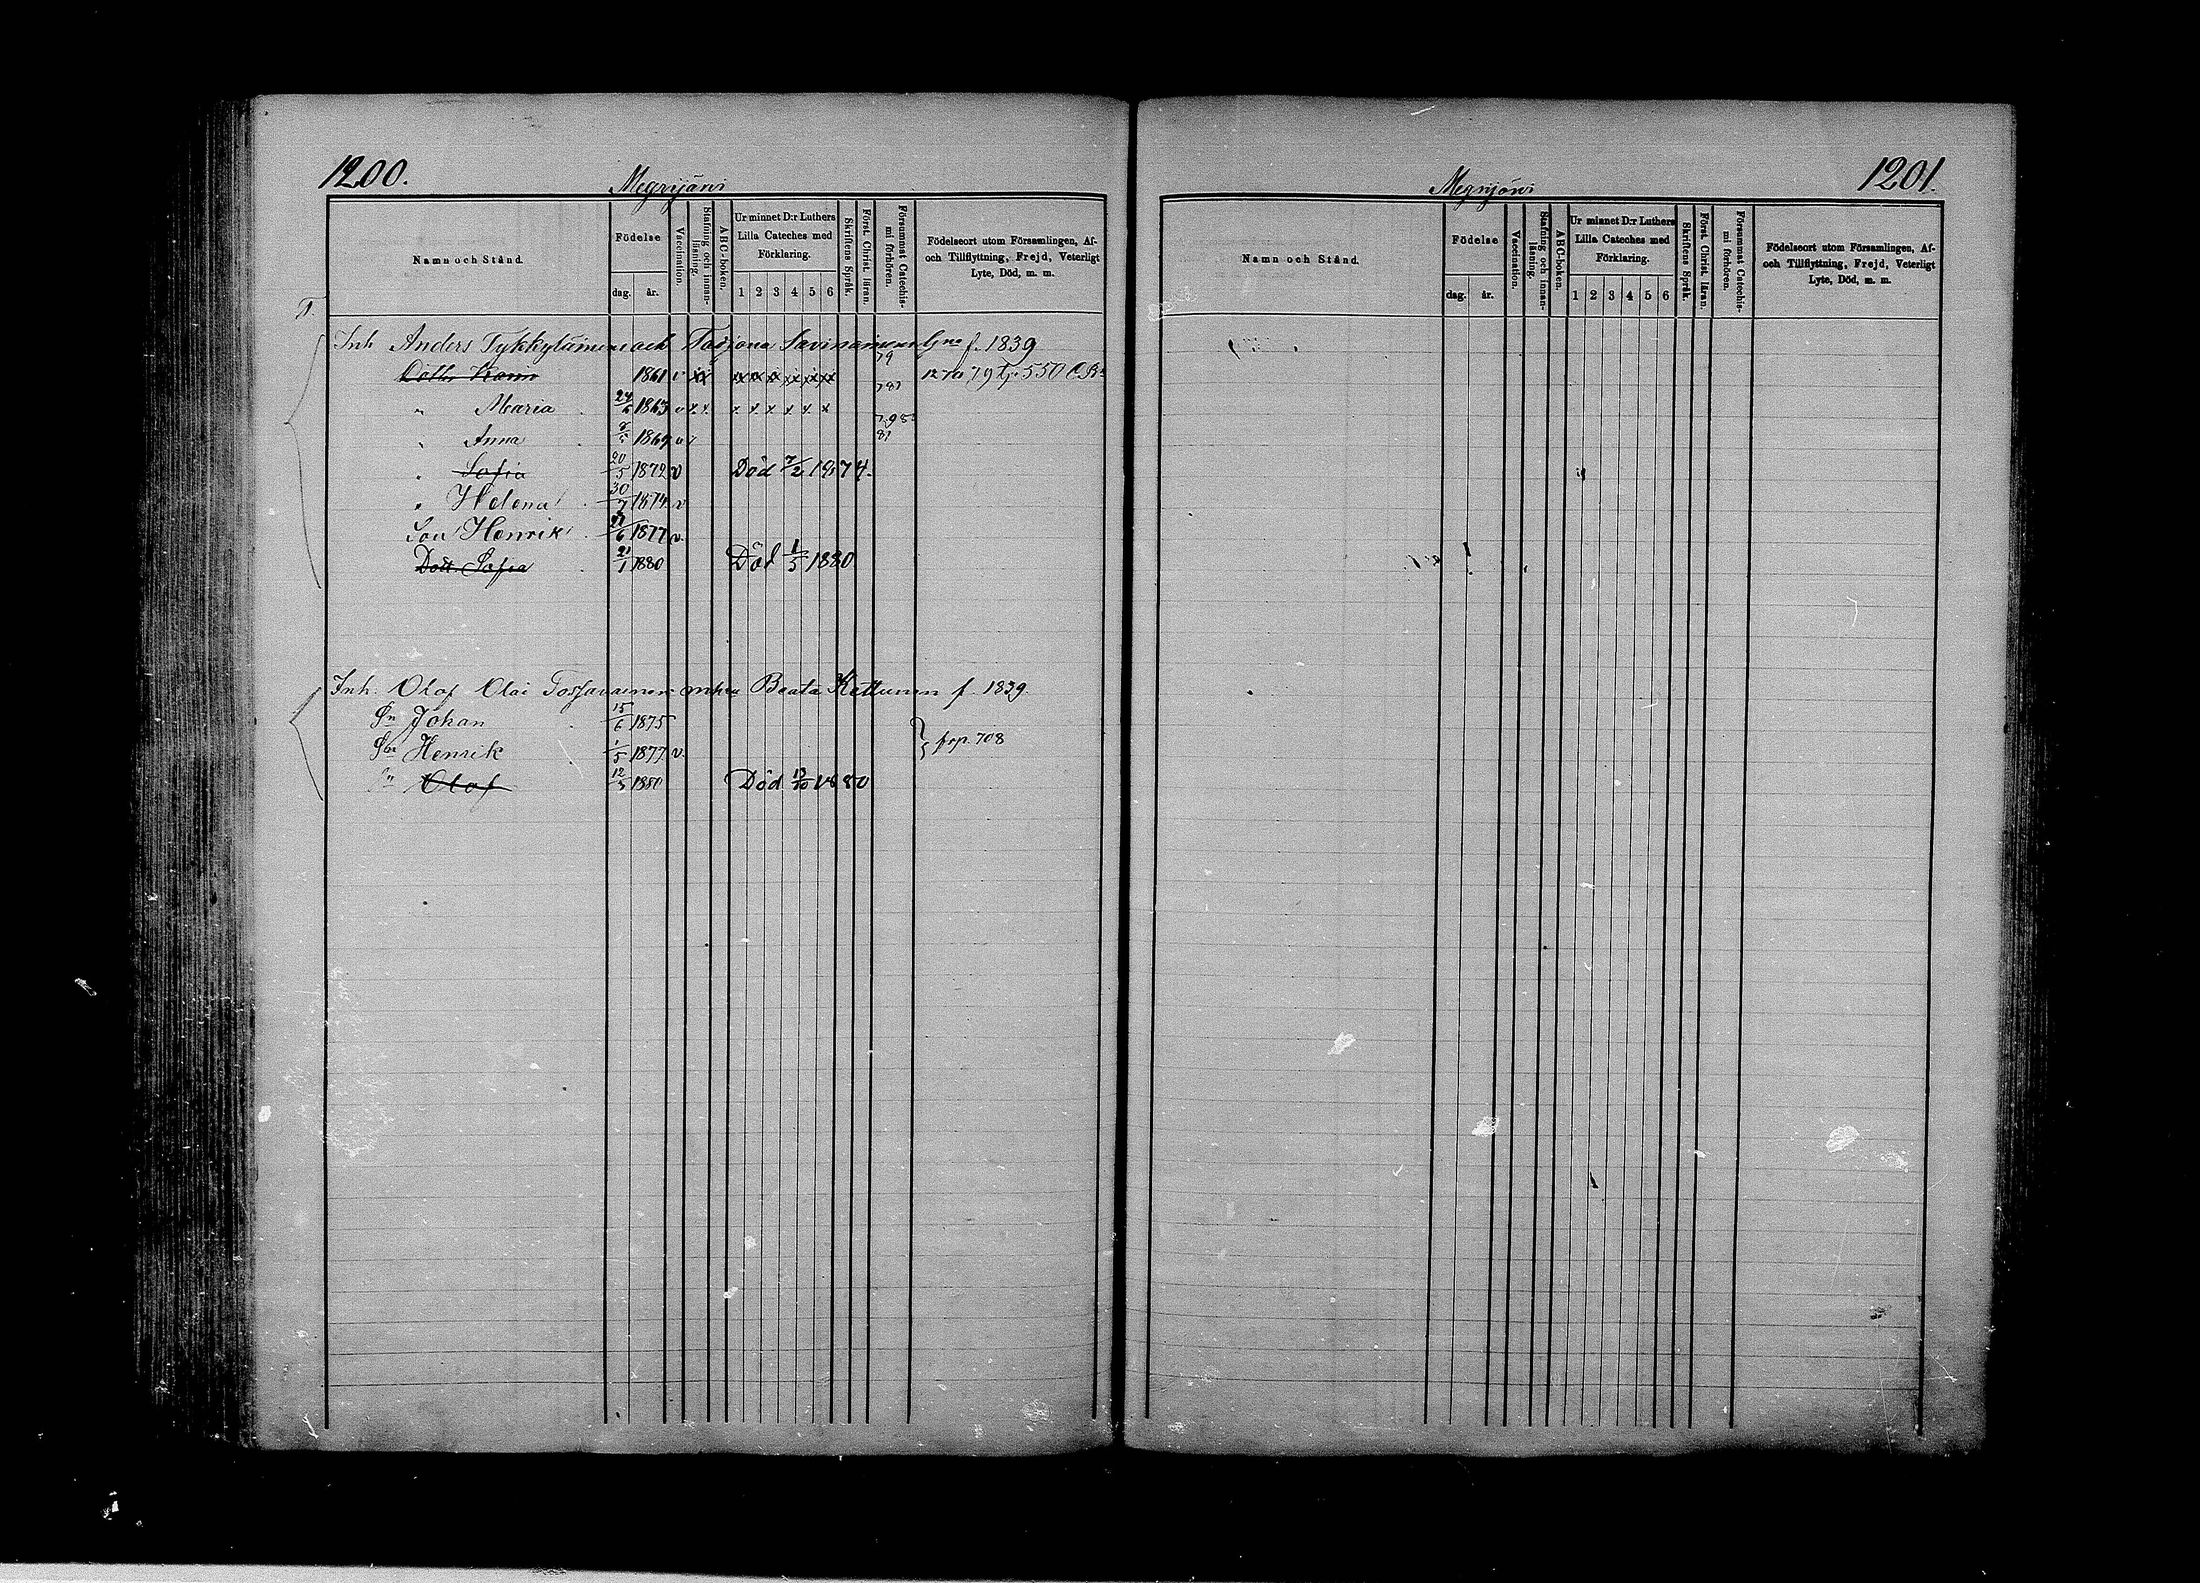 1200.
Megrijärvi
Namn och Stånd.
Födelse
dag.
år.
Vaccination.
Stafning och innan-
läsning.
ABC-boken.
Ur minnet D:r Luthers
Lilla Cateches med
Förklaring.
1 2 3 4 5 6
Skriftens Språk.
Först. Christ. läran.
Försummat Catechis-
mi förhören.
Födelseort utom Församlingen, Af-
och Tillflyttning, Frejd, Veterligt
Lyte, Död, m. m.
T.
Inh Anders Tykkyläinen och Savinainen f. 1839
79
Dottr Karin 1861 v xx x x x x x x 79 550
781
" Maria 24/6 1863 v x x x x x x x x
" Anna 1869 v
81
" Sofia 20/5 1872 v Död 7/2 1874.
" Helena 30/7 1874 v
Son Henrik 1877 v
Dott. Sofia 21/1 1880 Död 1/5 1880
Inh. Olof Olai Beata Kettunen f. 1839.
Sn Johan 15/6 1875
Sn Henrik 1/5 1877 v } frp. 708
" Olof 12/3 1880 Död 1880
Megrijärvi
1201.
Namn och Stånd.
Födelse
dag.
år.
Vaccination.
Stafning och innan-
läsning.
ABC-boken.
Ur minnet D:r Luthers
Lilla Cateches med
Förklaring.
1 2 3 4 5 6
Skriftens Språk.
Först. Christ. läran.
Försummat Catechis-
mi förhören.
Födelseort utom Församlingen, Af-
och Tillflyttning, Frejd, Veterligt
Lyte, Död, m. m.